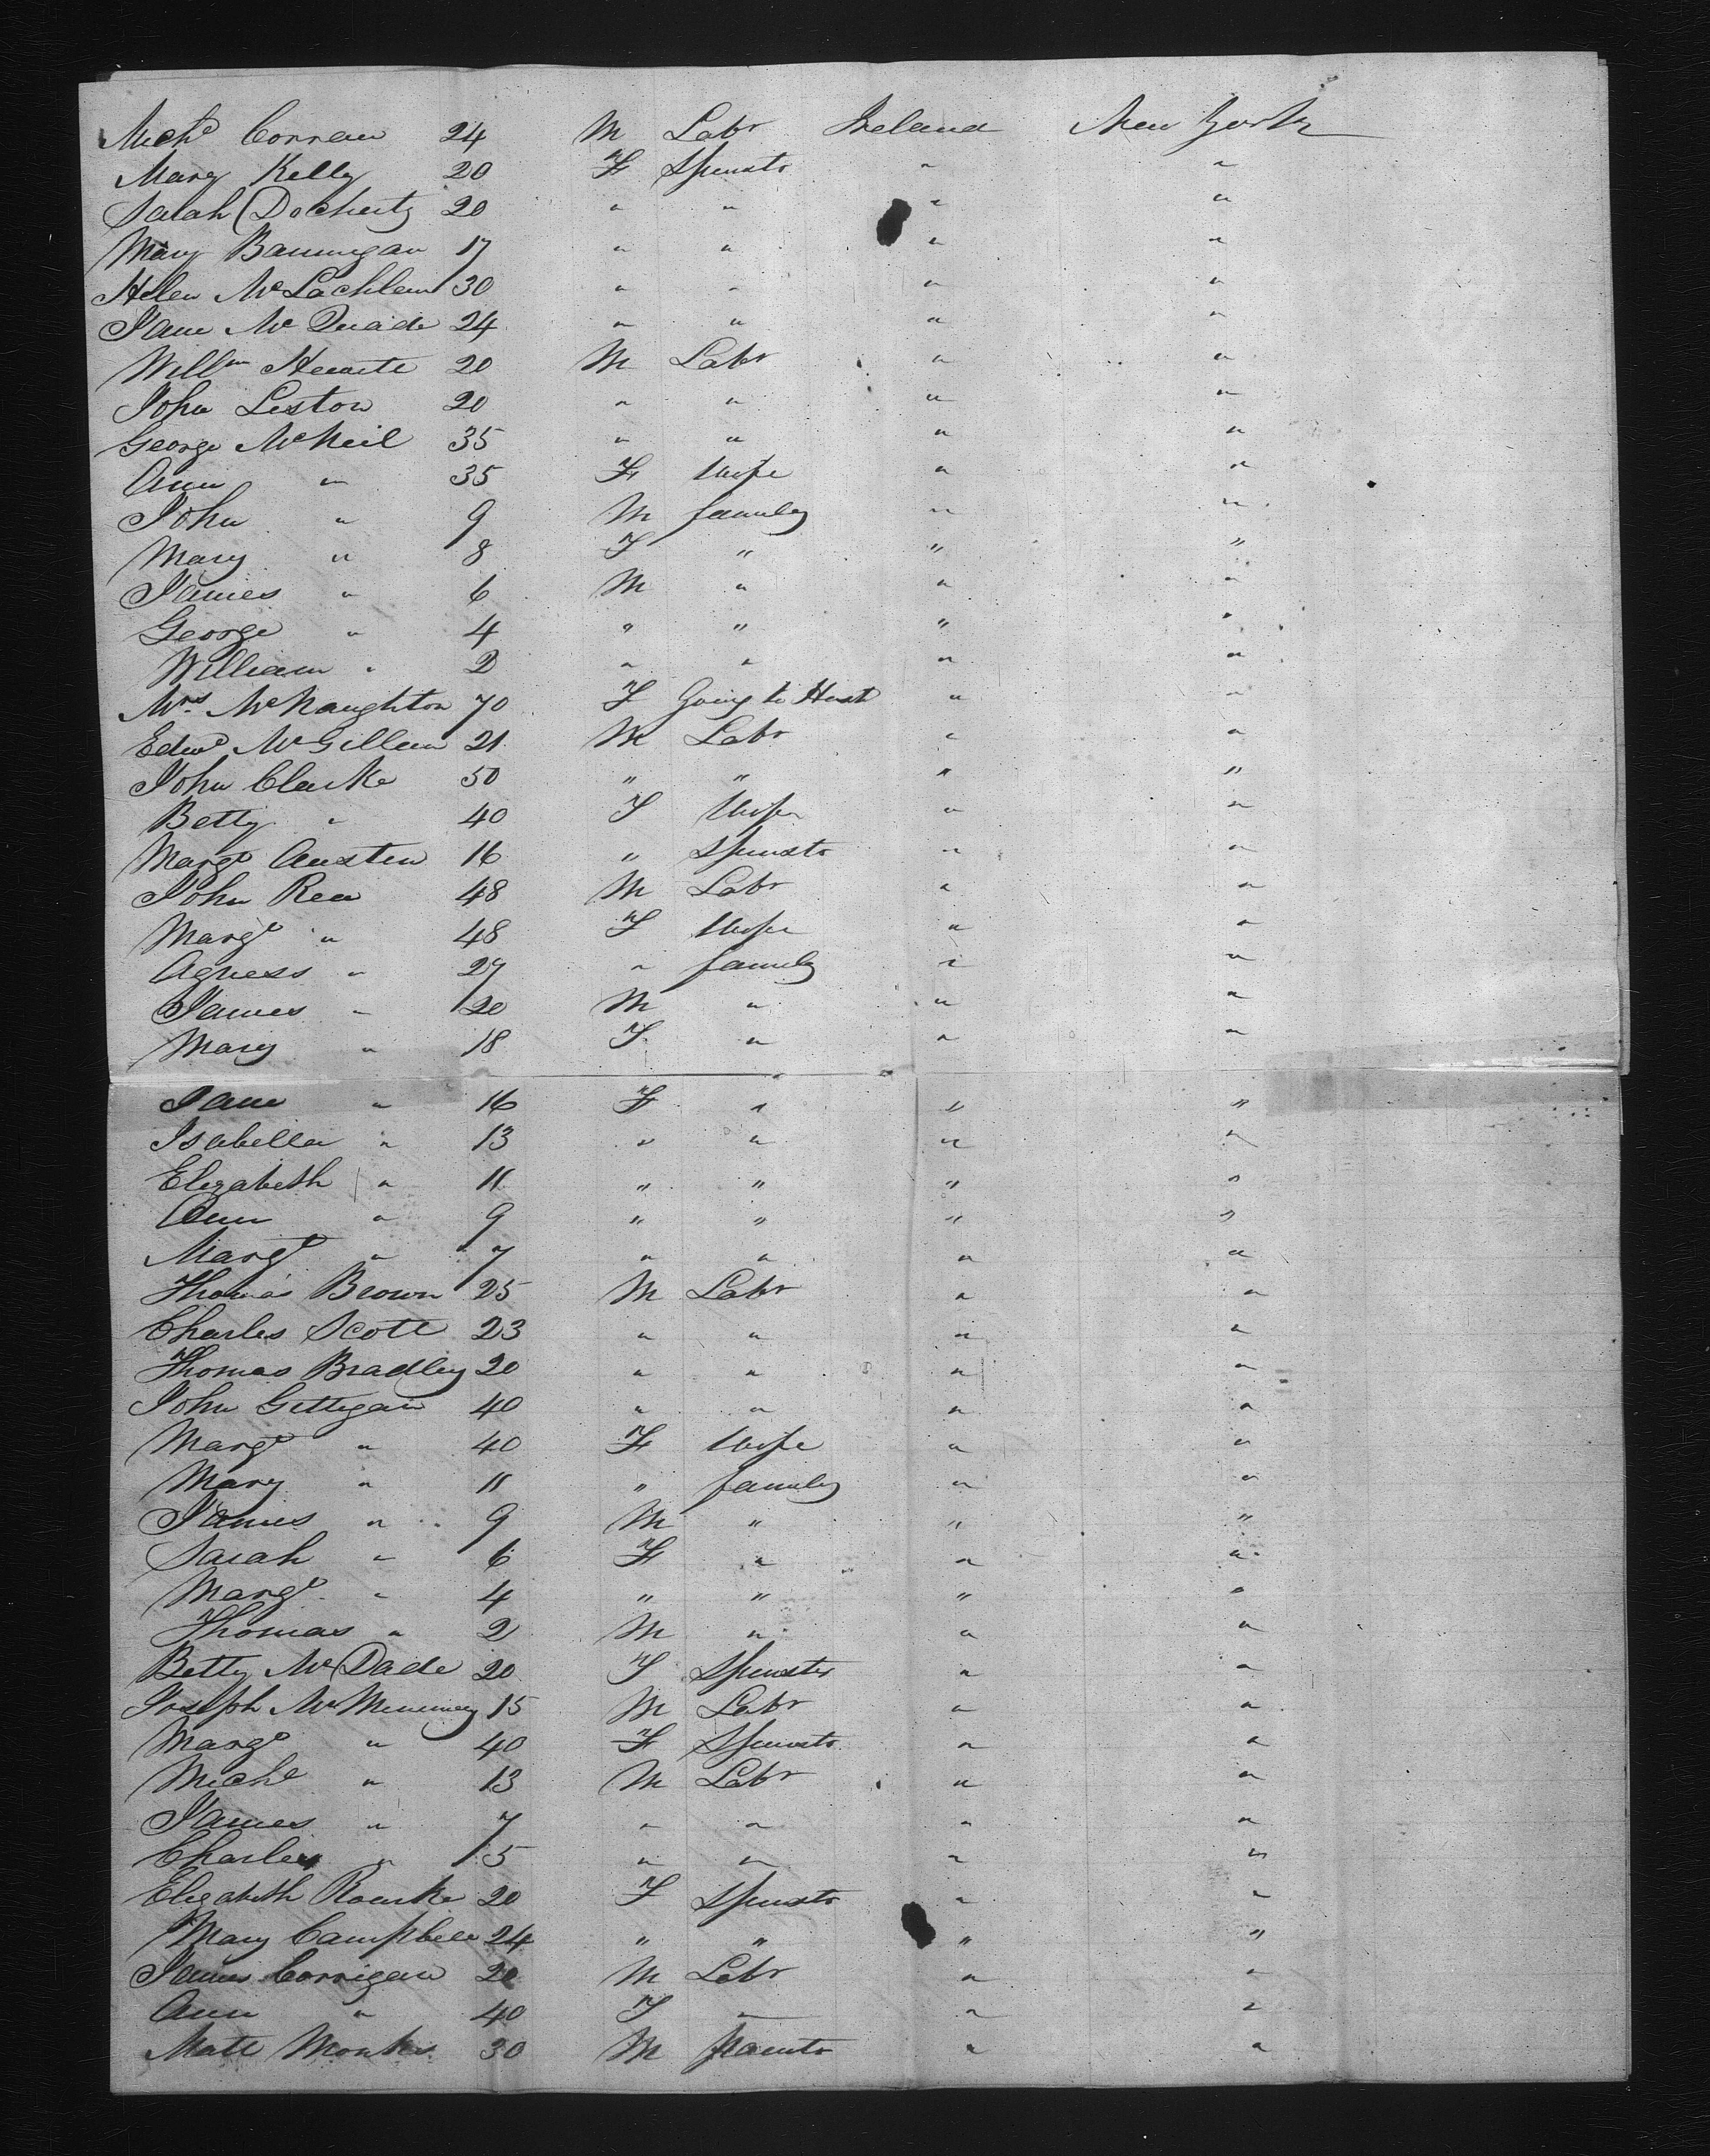 Mich^l Corran 24 M Labr Ireland New York
Mary Kelly 20 F Spinstr " "
Sarah Docherty 20 " " " "
Mary Bannigan 17 " " " "
Helen McLachlan 30 " " " "
Jane McQuade 24 " " " "
Will^m 20 M Labr " "
John Liston 20 " " " "
George McNeil 35 " " " "
Ann " 35 F Wife " "
John " 9 M family " "
Mary " 8 F " " "
James " 6 M " " "
George " 4 " " " "
William " 2 " " " "
Mrs McNaughton 70 F Going to Husb " "
Edwd McGillan 21 M Labr " "
John Clarke 50 " " " "
Betty " 40 F Wife " "
Margt Austin 16 " Spinstr " "
John Rea 48 M Labr " "
Margt " 48 F Wife " "
Agness " 27 " family " "
James " 20 M " " "
Mary " 18 F " " "
Jane " 16 F " " "
Isabella " 13 " " " "
Elizabeth " 11 " " " "
Ann " 9 " " " "
Margt " 7 " " " "
Thomas Brown 25 M Labr " "
Charles Scott 23 " " " "
Thomas Bradley 20 " " " "
John Gettigan 40 " " " "
Margt " 40 F Wife " "
Mary " 11 " family " "
James " 9 M " " "
Sarah " 6 F " " "
Margt " 4 " " " "
Thomas " 2 M " " "
Betty McDade 20 F Spinster " "
Joseph McMenimey 15 M Labr " "
Margt " 40 F Spinstr " "
Michl " 13 M Labr " "
James " 7 " " " "
Charles " 5 " " " "
Elizabeth Rourke 20 F Spinstr " "
Mary Campbell 24 " " " "
James Corrigan 20 M Labr " "
Ann " 40 F " " "
Matt Monks 30 M " "